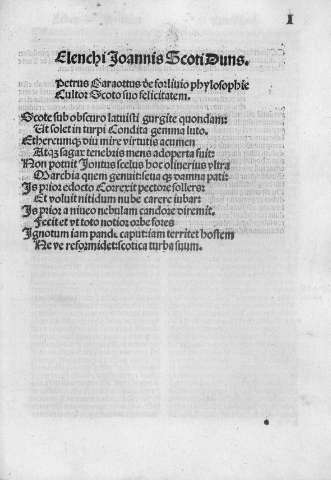 I
Elenchi Joannis Scoti Duns.
Petrus Garaottus de forliuio phylosophie
Cultor Scoto suo felicitatem.
Scote sub obscuro latuisti gurgite quondam:
Ut solet in turpi Condita gemma luto.
Ethereumqȝ diu mire virtutis acumen
Atqȝ sagax tenebris mens adoperta fuit:
Non potuit Jontus scelus hoc oliuerius vltra
Marchia quem genuit seua qȝ damna pati:
Is prior edocto Correxit pectore sollers:
Et voluit nitidum nube carere iubar:
Is prior a niueo nebulam candore diremit.
Fecit et vt toto notior orbe fores
Ignotum iam pande caput: iam territet hostem
Ne ve reformidet: scotica turba suum.